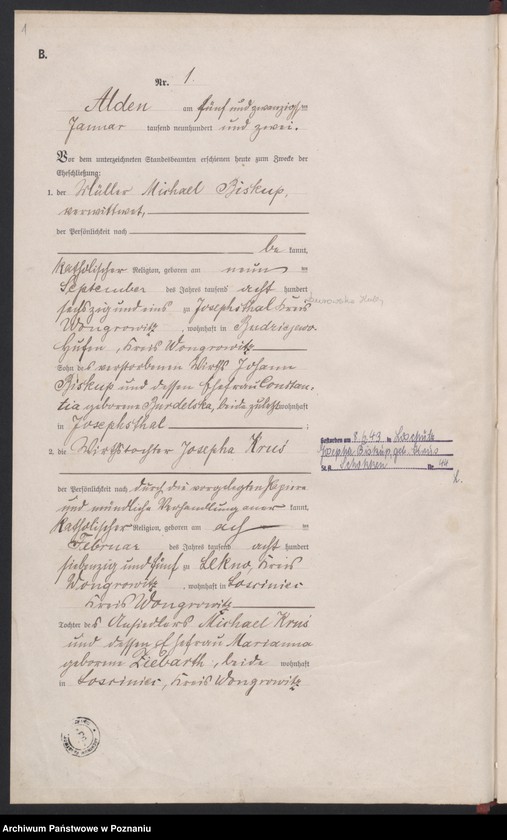 1
B.
Nr. 1.
Alden am fünf und zwanzigsten
Januar tausend neunhundert und zwei.
Vor dem unterzeichneten Standesbeamten erschienen heute zum Zwecke der
Eheschließung:
1. der Müller Michael Biskup,
verwittwet,
der Persönlichkeit nach
be kannt,
katholischer Religion, geboren am neun ten
September des Jahres tausend acht hundert
sechszig und eins zu Josephsthal Kreis
Wongrowitz, wohnhaft in
Hufen, Kreis Wongrowitz
Sohn des verstorbenen Wirths Johann
Biskup und dessen Ehefrau Constan-
tia geborene Burdelska, beide zuletzt wohnhaft
in Josephsthal ;
2. die Wirthstochter Josepha Krus
der Persönlichkeit nach durch die vorgelegten Papiere
und mündliche Verhandlung aner kannt,
katholischer Religion, geboren am ach ten
Februar des Jahres tausend acht hundert
siebenzig und fünf zu Lekno, Kreis
Wongrowitz, wohnhaft in Losrinies
Kreis Wongrowitz
Tochter des Ansiedlers Michael Krus
und dessen Ehefrau Marianna
geborene Ziebarth, beide wohnhaft
in Losrinies, Kreis Wongrowitz
Gestorben am 8.6.43 in
Josepha Biskup, geb. Krus
St.A. Schokken Nr. 44
Archiwum Państwowe w Poznaniu